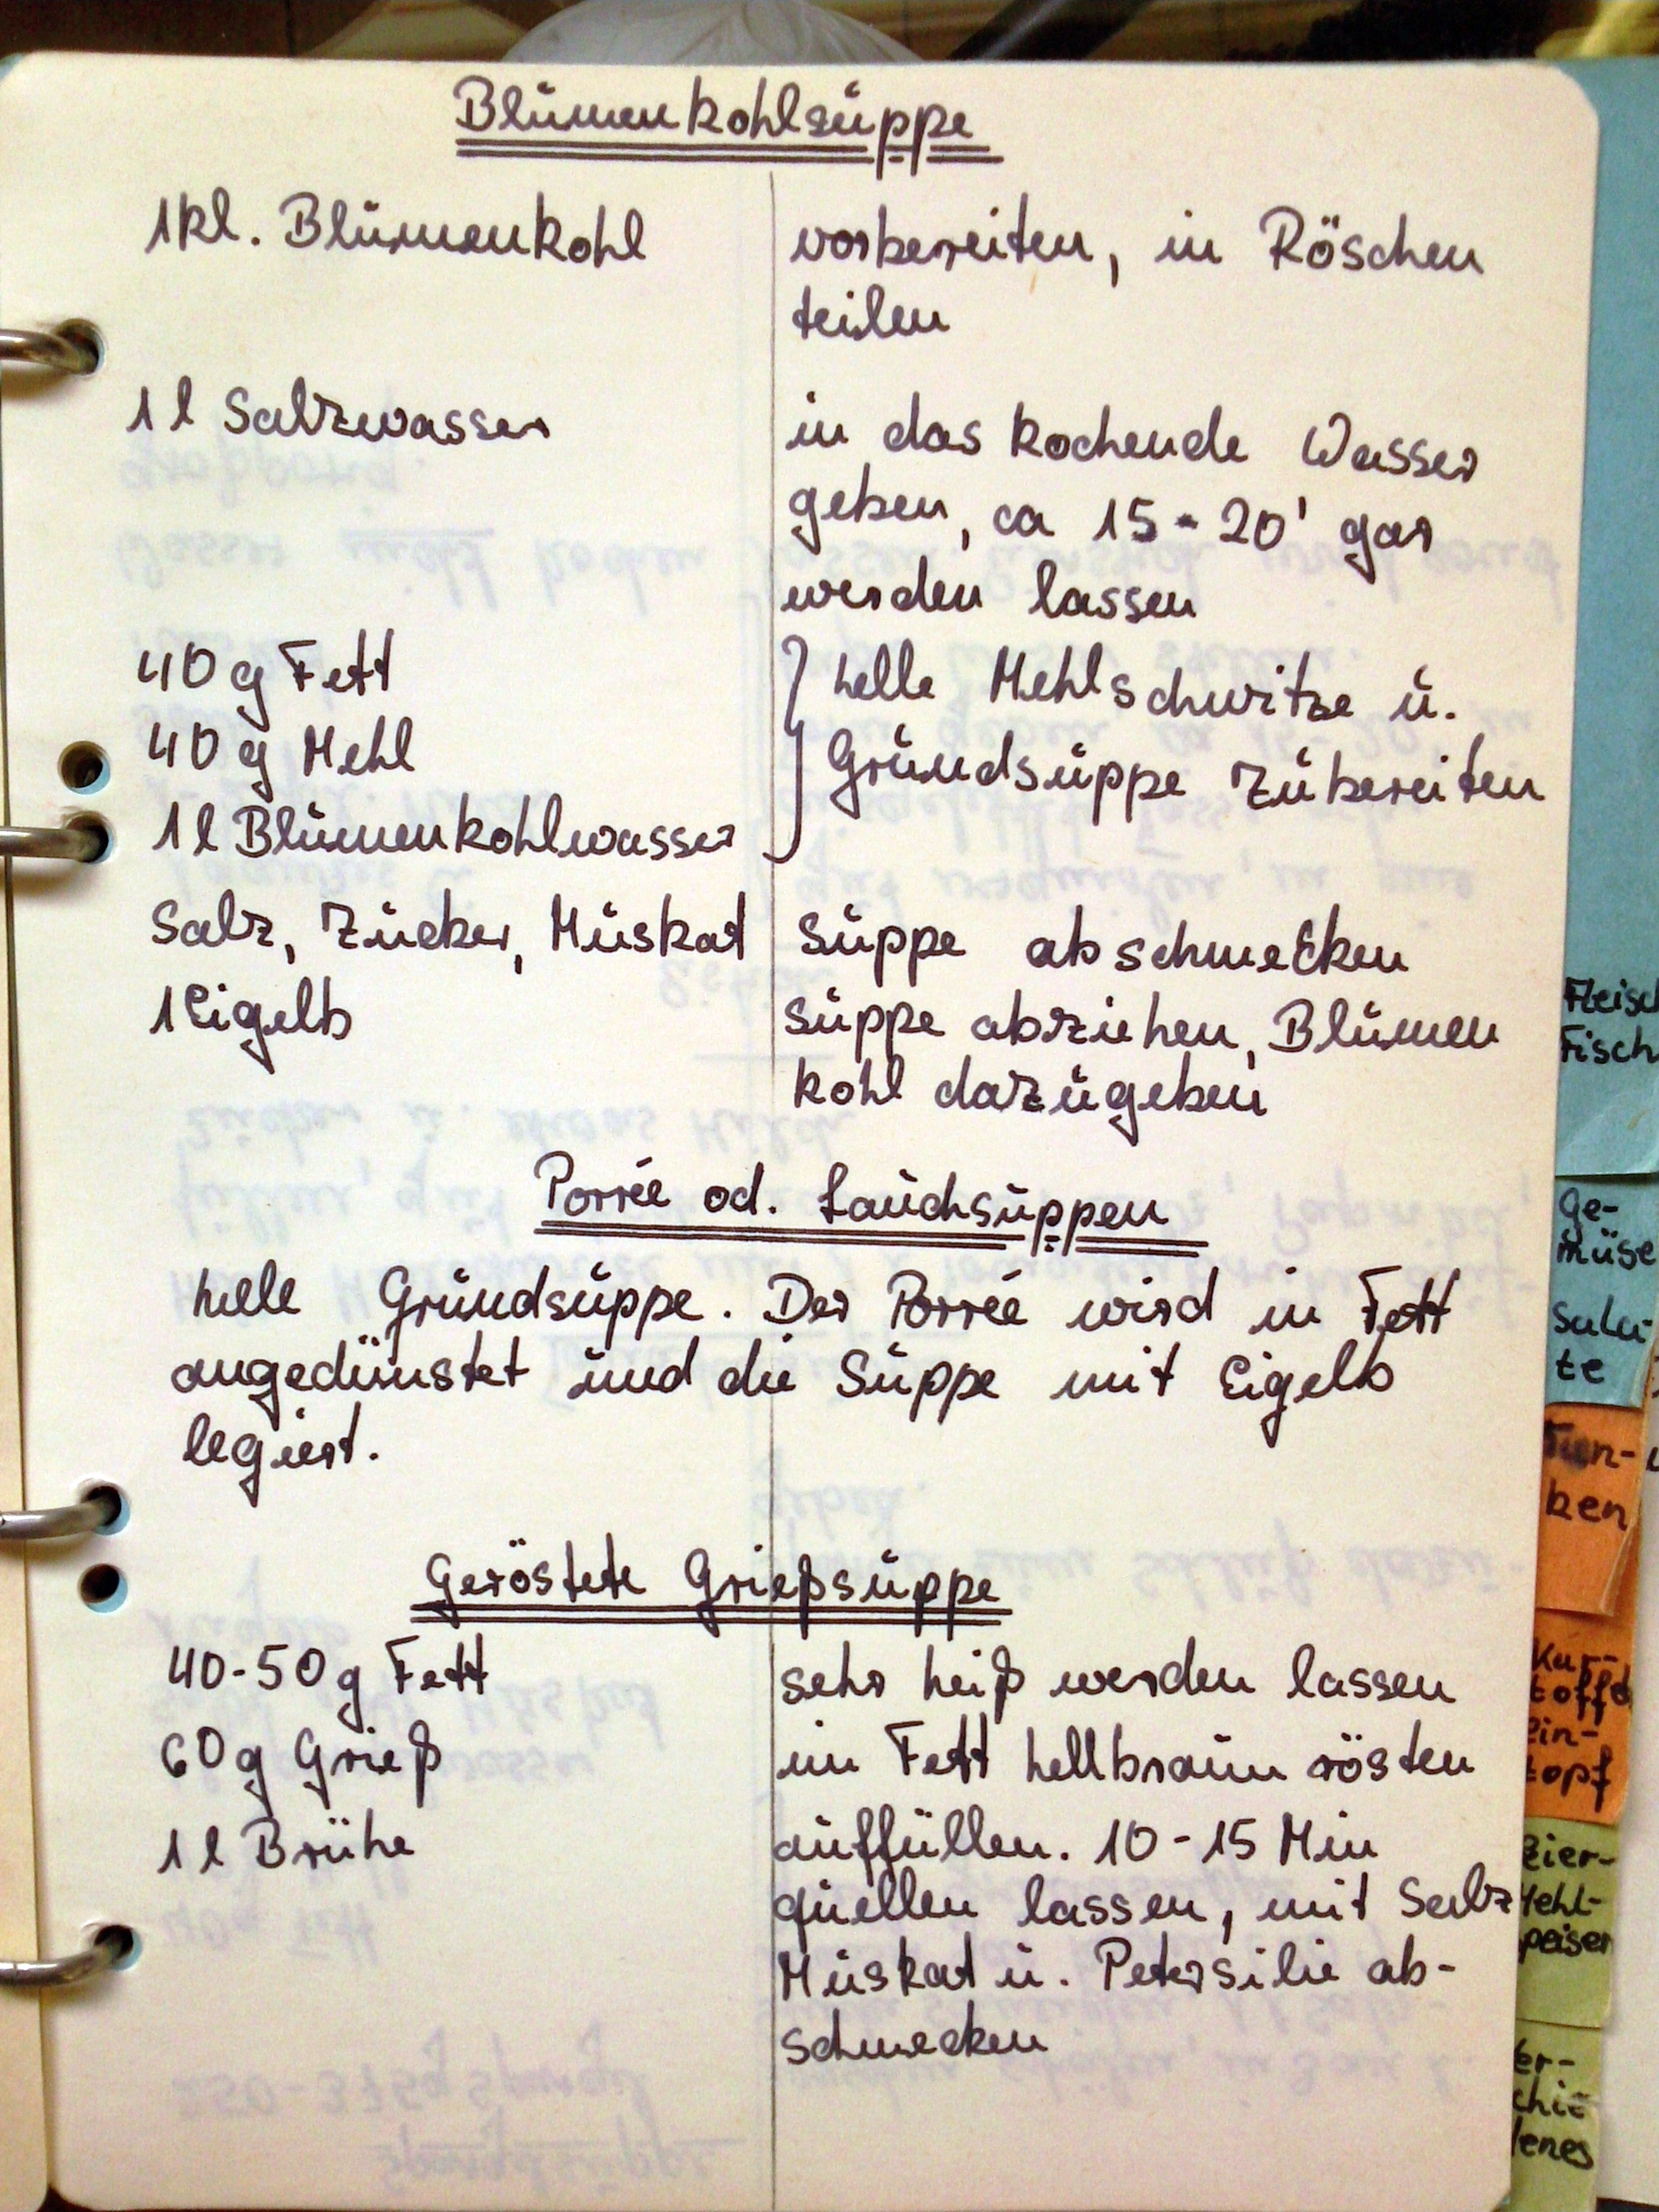 Blumenkohlsuppe
1 kl. Blumenkohl
vorbereiten, in Röschen
teilen
1 l Salzwasser
in das kochende Wasser
geben, ca 15-20' gar
werden lassen
40 g Fett
40 g Mehl
1 l Blumenkohlwasser
helle Mehlschwitze u.
Grundsuppe zubereiten
Salz, Zucker, Muskat
Suppe abschmecken
1 Eigelb
Suppe abziehen, Blumen
kohl dazugeben
Porrée od. Lauchsuppen
helle Grundsuppe. Der Porrée wird in Fett
angedünstet und die Suppe mit Eigelb
legiert.
Geröstete Grießsuppe
40-50 g Fett
sehr heiß werden lassen
60 g Grieß
im Fett hellbraun rösten
1 l Brühe
auffüllen. 10-15 Min
quellen lassen, mit Salz
Muskat u. Petersilie ab-
schmecken
Fleisch
Fisch
Ge-
müse
Sala-
te
Tun-
ken
Kar-
toffe
Ein-
topf
Eier-
Mehl-
peisen
er-
chie
enes